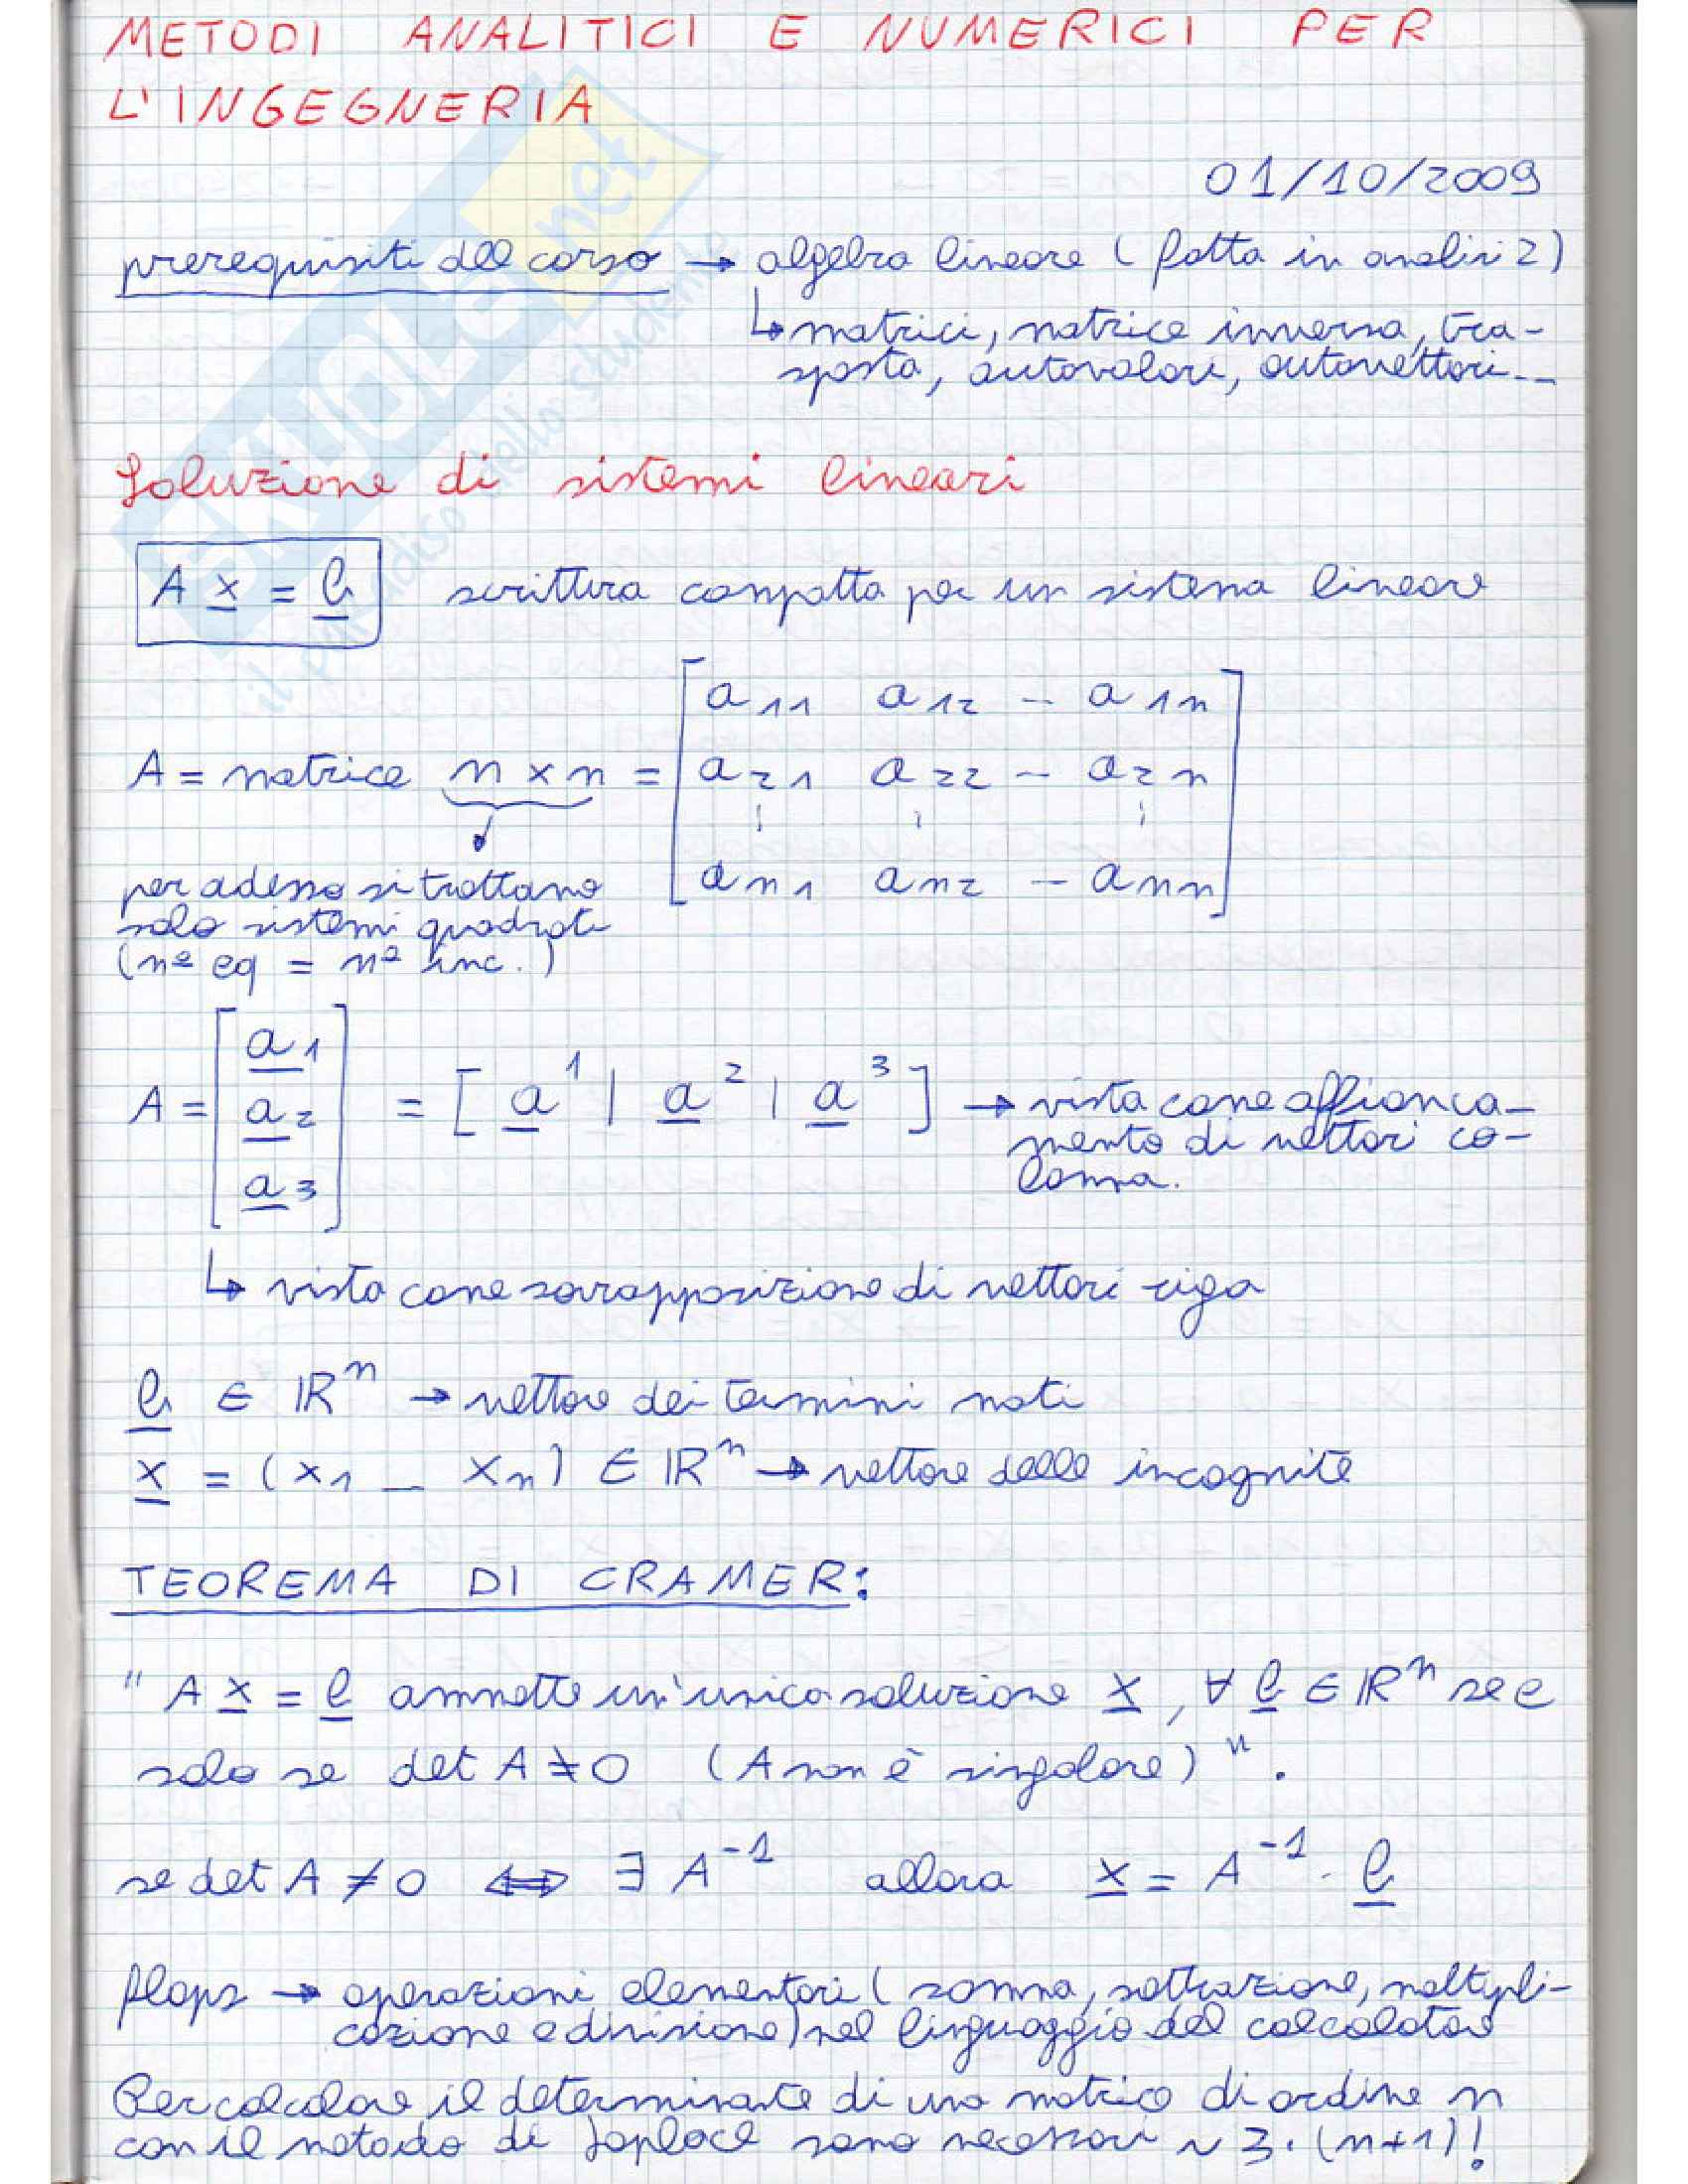 METODI ANALITICI E NUMERICI PER
L'INGEGNERIA
01/10/2009
prerequisiti del corso → algebra lineare (fatta in analisi 2)
↳ matrici, matrice inversa, tra-
sposta, autovalori, autovettori...
Soluzione di sistemi lineari
A x = b scrittura compatta per un sistema lineare
A = matrice n × n = [ a11 a12 -- a1n
a21 a22 -- a2n
an1 an2 -- ann ]
per adesso si trattano
solo sistemi quadrati
(nº eq = nº inc.)
A = [ a1
a2
a3 ] = [ a¹ | a² | a³ ] → vista come affianca-
mento di vettori co-
lonna.
↳ vista come sovrapposizione di vettori riga
b ∈ ℝⁿ → vettore dei termini noti
x = (x1 _ xn) ∈ ℝⁿ → vettore delle incognite
TEOREMA DI CRAMER:
" A x = b ammette un'unica soluzione x, ∀ b ∈ ℝⁿ se e
solo se det A ≠ 0 (A non è singolare) ".
se det A ≠ 0 ⇔ ∃ A⁻¹ allora x = A⁻¹ · b
flops → operazioni elementari (somma, sottrazione, moltipli-
cazione e divisione) nel linguaggio del calcolatore
Per calcolare il determinante di una matrice di ordine n
con il metodo di Laplace sono necessari ~ 3 · (n+1)!
SKUOLA.net
il paradiso dello studente